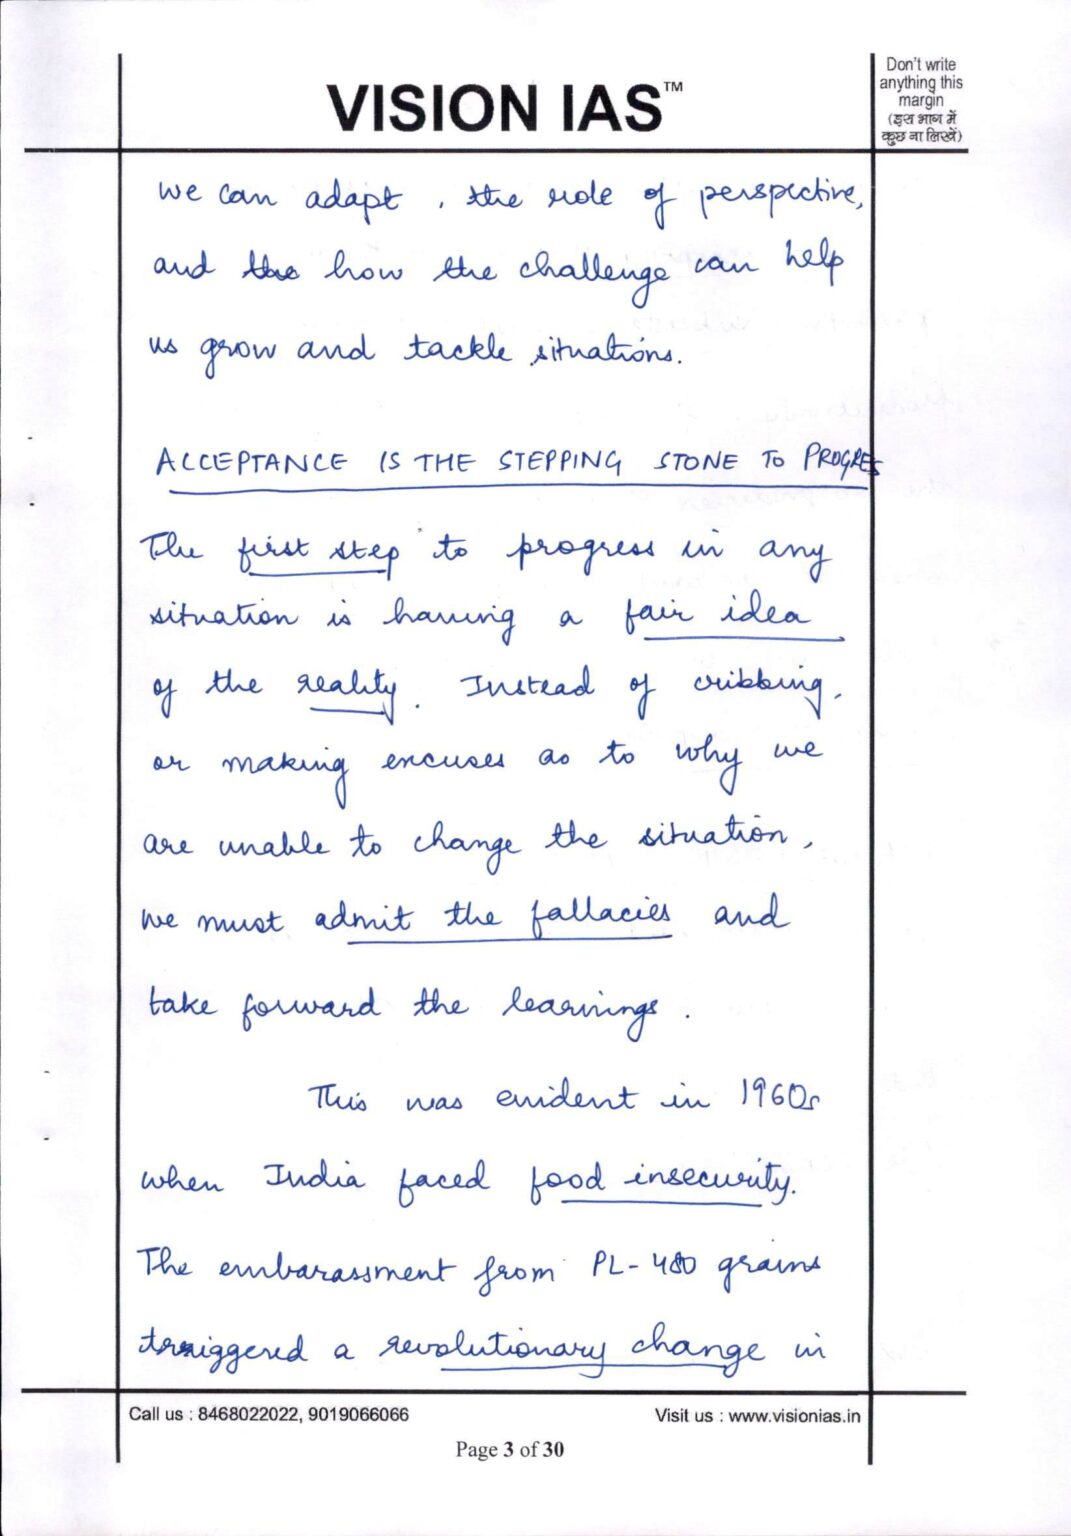 VISION IAS™
Don't write
anything this
margin
(इस भाग में
कुछ ना लिखें)
we can adapt, the role of perspective,
and the how the challenge can help
us grow and tackle situations.
ACCEPTANCE IS THE STEPPING STONE TO PROGRES
The first step to progress in any
situation is having a fair idea
of the reality. Instead of cribbing,
or making excuses as to why we
are unable to change the situation,
we must admit the fallacies and
take forward the learnings.
This was evident in 1960s
when India faced food insecurity.
The embarassment from PL-480 grains
triggered a revolutionary change in
Call us : 8468022022, 9019066066
Visit us : www.visionias.in
Page 3 of 30